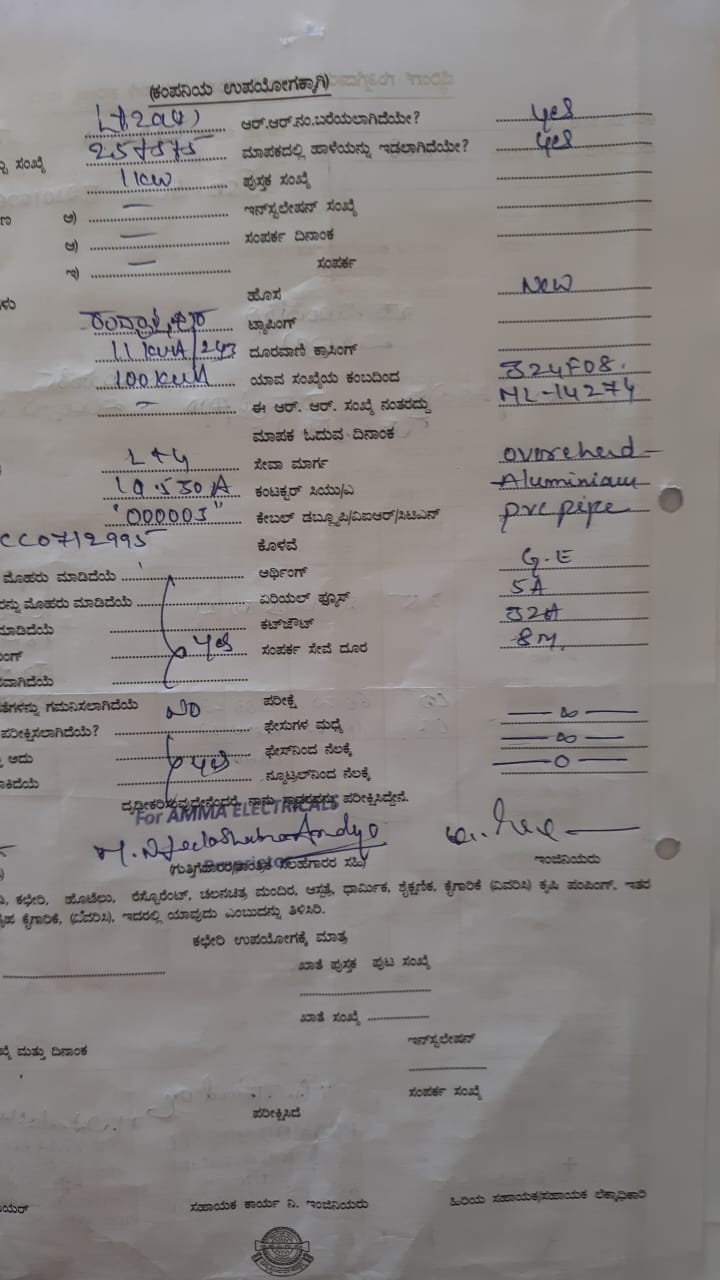 (ಕಂಪನಿಯ ಉಪಯೋಗಕ್ಕಾಗಿ)
ಆರ್.ಆರ್.ನಂ.ಬರೆಯಲಾಗಿದೆಯೇ? yes
ಸಂಖ್ಯೆ ಮಾಪಕದಲ್ಲಿ ಹಾಳೆಯನ್ನು ಇಡಲಾಗಿದೆಯೇ? yes
1 KW ಪುಸ್ತಕ ಸಂಖ್ಯೆ
ಅ) — ಇನ್‌ಸ್ಟಲೇಷನ್ ಸಂಖ್ಯೆ
ಆ) — ಸಂಪರ್ಕ ದಿನಾಂಕ
ಇ) — ಸಂಪರ್ಕ
ಹೊಸ New
ಟ್ಯಾಪಿಂಗ್
11 KVA/243 ದೂರವಾಣಿ ಕ್ರಾಸಿಂಗ್
100 KVA ಯಾವ ಸಂಖ್ಯೆಯ ಕಂಬದಿಂದ J24F08.
— ಈ ಆರ್. ಆರ್. ಸಂಖ್ಯೆ ನಂತರದ್ದು ML-14274
ಮಾಪಕ ಓದುವ ದಿನಾಂಕ
L+G ಸೇವಾ ಮಾರ್ಗ overehead
ಕಂಟಕ್ಟರ್ ಸಿಯು/ಎ Aluminiam
ಕೇಬಲ್ ಡಬ್ಲ್ಯೂಪಿ/ವಿಐಆರ್/ಸಿಟಿಎನ್ pvc pipe
CC0712995 ಕೊಳವೆ
ಮೊಹರು ಮಾಡಿದೆಯೆ ಆರ್ಥಿಂಗ್ G.E
ಮೊಹರು ಮಾಡಿದೆಯೆ ಏರಿಯಲ್ ಫ್ಯೂಸ್ 5A
ಮಾಡಿದೆಯೆ ಕಟ್‌ಔಟ್ 32A
yes ಸಂಪರ್ಕ ಸೇವೆ ದೂರ 8M.
ಗಮನಿಸಲಾಗಿದೆಯೆ NO ಪರೀಕ್ಷೆ
ಪರೀಕ್ಷಿಸಲಾಗಿದೆಯೆ? ಫೇಸುಗಳ ಮಧ್ಯೆ — ∞ —
ಅದು yes ಫೇಸ್‌ನಿಂದ ನೆಲಕ್ಕೆ — ∞ —
ನ್ಯೂಟ್ರಲ್‌ನಿಂದ ನೆಲಕ್ಕೆ — 0 —
ದೃಢೀಕರಿಸುವುದೇನೆಂದರೆ, ನಾನು ಸ್ಥಾವರವನ್ನು ಪರೀಕ್ಷಿಸಿದ್ದೇನೆ.
For AMMA ELECTRICALS
Proprietor
(ಗುತ್ತಿಗೆದಾರರ/ತಾಂತ್ರಿಕ ಸಲಹಗಾರರ ಸಹಿ) ಇಂಜಿನಿಯರು
ಕಛೇರಿ, ಹೊಟೆಲು, ರೆಸ್ಟೋರೆಂಟ್, ಚಲನಚಿತ್ರ ಮಂದಿರ, ಆಸ್ಪತ್ರೆ, ಧಾರ್ಮಿಕ, ಶೈಕ್ಷಣಿಕ, ಕೈಗಾರಿಕೆ (ವಿವರಿಸಿ) ಕೃಷಿ ಪಂಪಿಂಗ್, ಇತರ
ಗೃಹ ಕೈಗಾರಿಕೆ, (ವಿವರಿಸಿ), ಇದರಲ್ಲಿ ಯಾವುದು ಎಂಬುದನ್ನು ತಿಳಿಸಿರಿ.
ಕಛೇರಿ ಉಪಯೋಗಕ್ಕೆ ಮಾತ್ರ
ಖಾತೆ ಪುಸ್ತಕ ಪುಟ ಸಂಖ್ಯೆ
ಖಾತೆ ಸಂಖ್ಯೆ
ಮತ್ತು ದಿನಾಂಕ ಇನ್‌ಸ್ಟಲೇಷನ್
ಸಂಪರ್ಕ ಸಂಖ್ಯೆ
ಪರೀಕ್ಷಿಸಿದೆ
ಸಹಾಯಕ ಕಾರ್ಯ ನಿ. ಇಂಜಿನಿಯರು ಹಿರಿಯ ಸಹಾಯಕ/ಸಹಾಯಕ ಲೆಕ್ಕಾಧಿಕಾರಿ